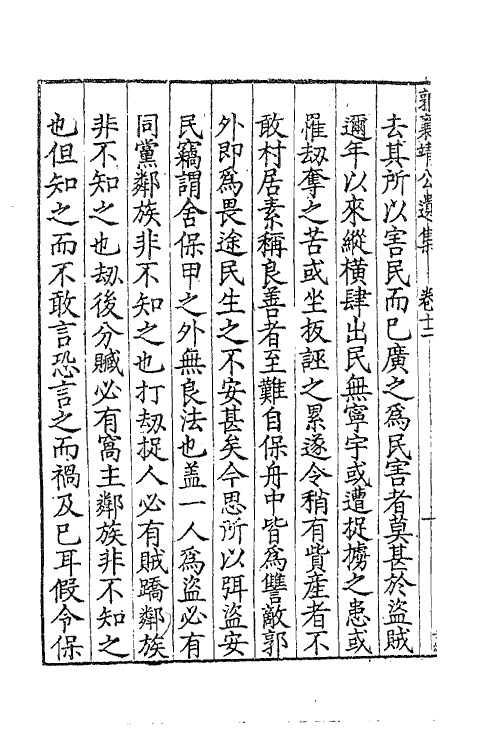 郭襄靖公遺集　卷十二　一
去其所以害民而已廣之爲民害者莫甚於盜賊
邇年以來縱橫肆出民無寧宇或遭捉擄之患或
罹刼奪之苦或坐扳誣之累遂令稍有貲產者不
敢村居素稱良善者至難自保舟中皆爲讐敵郭
外即爲畏途民生之不安甚矣今思所以弭盜安
民竊謂舍保甲之外無良法也盖一人爲盜必有
同黨鄰族非不知之也打刼捉人必有賊蹻鄰族
非不知之也刼後分贓必有窩主鄰族非不知之
也但知之而不敢言恐言之而禍及已耳假令保